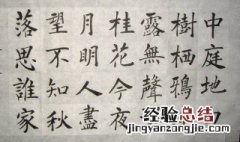 中庭地
樹栖鴉
露無聲
桂花今夜
月明人盡
望不知秋
落思誰家
经验总结
jingyanzongjie.com